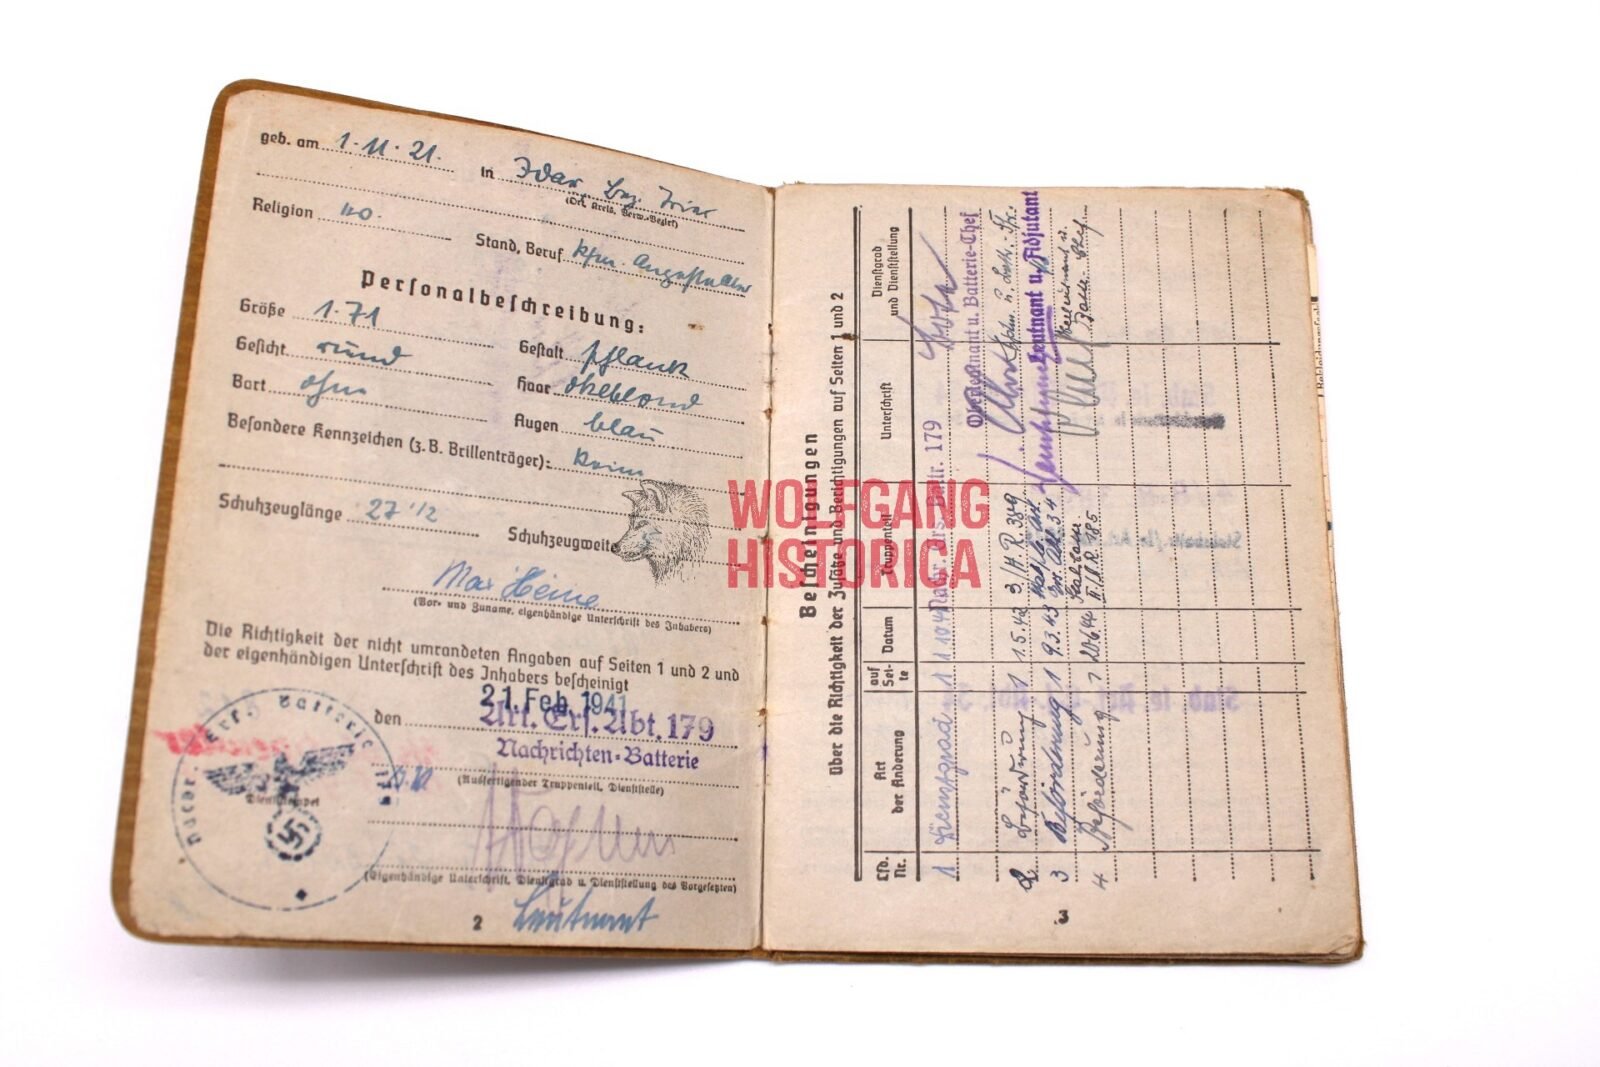 geb. am 1.11.21. in Idar, Bez. Trier
(Ort, Kreis, Verw.-Bezirk)
Religion
Stand, Beruf kfm. Angestellter
Personalbeschreibung:
Größe 1.71 Gestalt schlank
Gesicht rund Haar dklblond
Bart ohne Augen blau
Besondere Kennzeichen (z.B. Brillenträger): keine
Schuhzeuglänge 27 1/2 Schuhzeugweite 5
Max Heine
(Vor- und Zuname, eigenhändige Unterschrift des Inhabers)
Die Richtigkeit der nicht umrandeten Angaben auf Seiten 1 und 2 und
der eigenhändigen Unterschrift des Inhabers bescheinigt
den 21. Feb. 1941
Art. Ers. Abt. 179
Nachrichten-Batterie
(Ausfertigender Truppenteil, Dienststelle)
Dienststempel
(Eigenhändige Unterschrift, Dienstgrad u. Dienststellung des Vorgesetzten)
Leutnant
2
Bescheinigungen
über die Richtigkeit der Zusätze und Berichtigungen auf Seiten 1 und 2
Lfd. Nr. Art der Änderung auf Sei- te Datum Truppenteil Unterschrift Dienstgrad und Dienststellung
1 Dienstgrad 1 Nachr. Ers. Battr. 179
Oberleutnant u. Batterie-Chef
2 Beförderung 1 1.5.42 3./A.R. 389
3 Beförderung 1 9.3.43 Leutnant u. Adjutant
4 Beförderung 20.6.44
3
WOLFGANG
HISTORICA